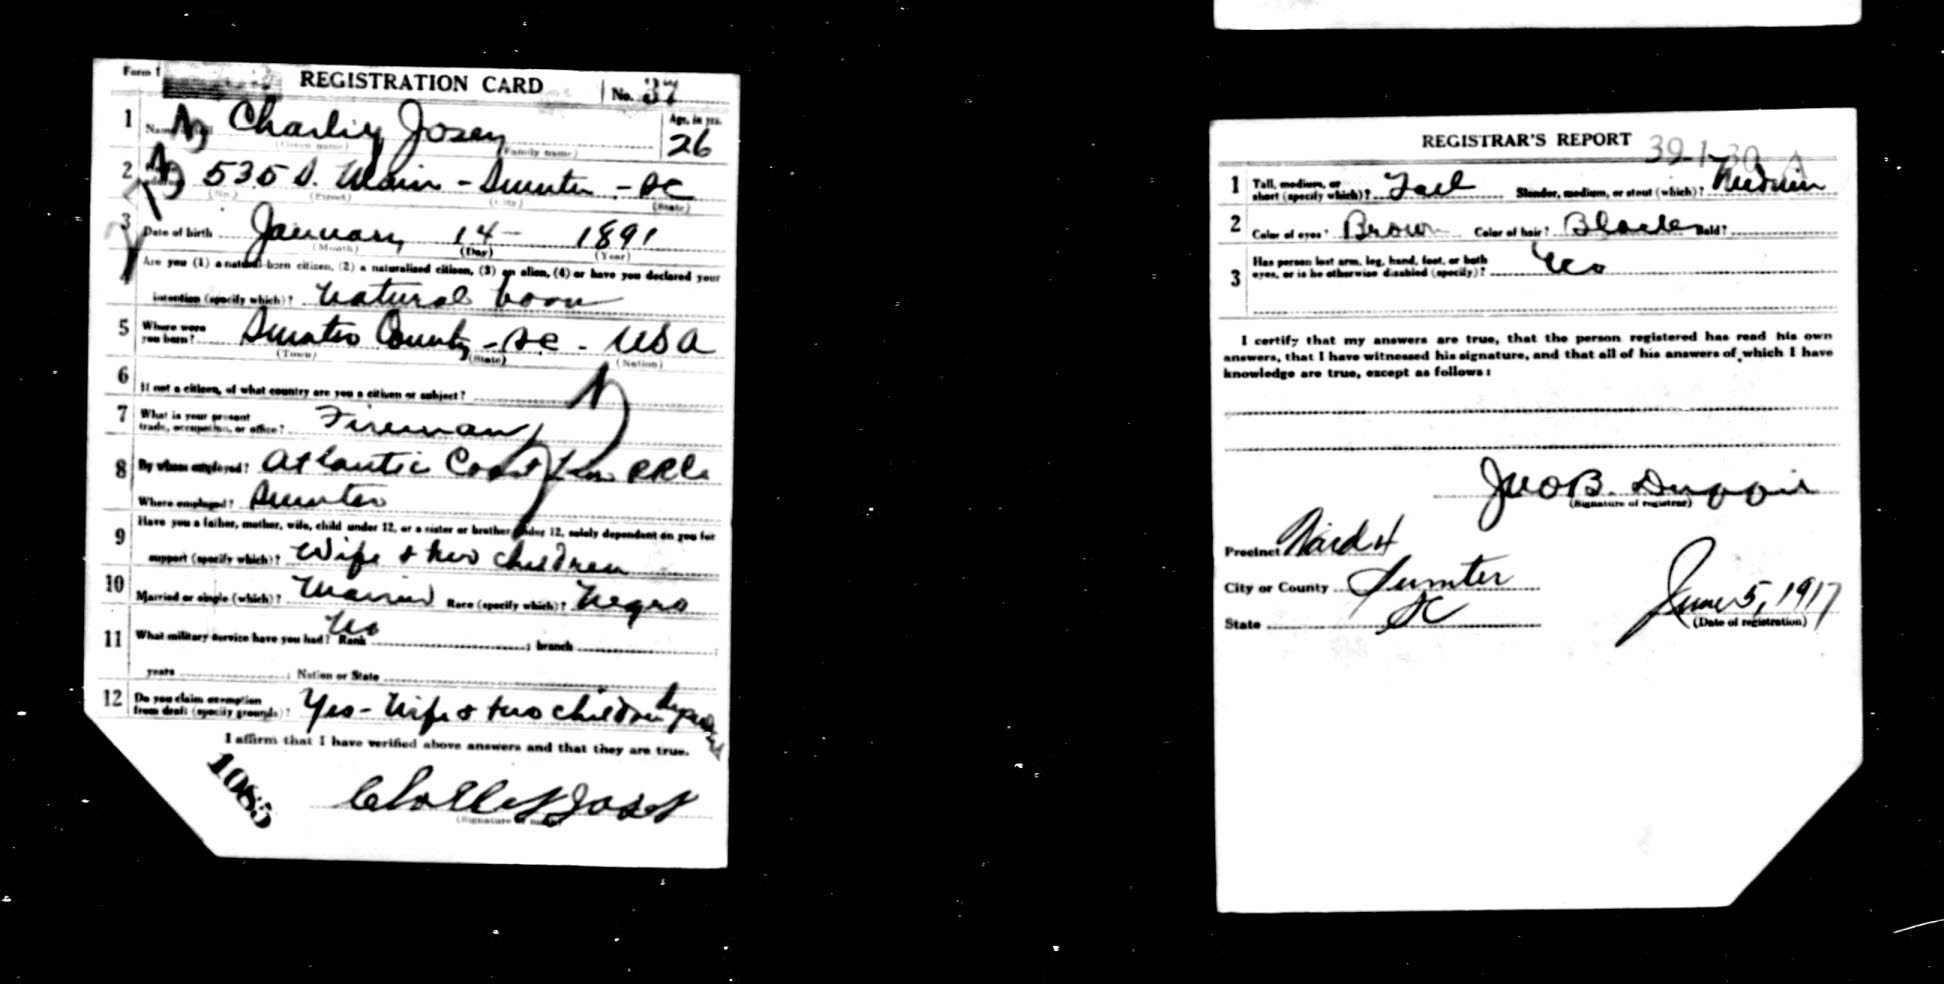 Form 1 REGISTRATION CARD No. 37
1 Name in full Charley Josey Age, in yrs. 26
(Given name) (Family name)
2 535 S. Main - Sumter - SC
(No.) (Street) (City) (State)
3 Date of birth January 14 - 1891
(Month) (Day) (Year)
Are you (1) a natural-born citizen, (2) a naturalized citizen, (3) an alien, (4) or have you declared your
intention (specify which)? Natural born
5 Where were you born? Sumter County - SC - USA
(Town) (State) (Nation)
6 If not a citizen, of what country are you a citizen or subject?
7 What is your present trade, occupation, or office? Fireman
8 By whom employed? Atlantic Coast Line RR Co
Where employed? Sumter
9 Have you a father, mother, wife, child under 12, or a sister or brother under 12, solely dependent on you for
support (specify which)? Wife & two children
10 Married or single (which)? Married Race (specify which)? Negro
11 What military service have you had? Rank No ; branch ;
years ; Nation or State
12 Do you claim exemption from draft (specify grounds)? Yes - Wife & two children dependent
I affirm that I have verified above answers and that they are true.
(Signature or mark)
1085
REGISTRAR'S REPORT
1 Tall, medium, or short (specify which)? Tall Slender, medium, or stout (which)? Medium
2 Color of eyes? Brown Color of hair? Black Bald?
3 Has person lost arm, leg, hand, foot, or both eyes, or is he otherwise disabled (specify)? No
I certify that my answers are true, that the person registered has read his own
answers, that I have witnessed his signature, and that all of his answers of which I have
knowledge are true, except as follows:
Jno B. Duffie
(Signature of registrar)
Precinct Ward 4
City or County Sumter
State SC
June 5, 1917
(Date of registration)